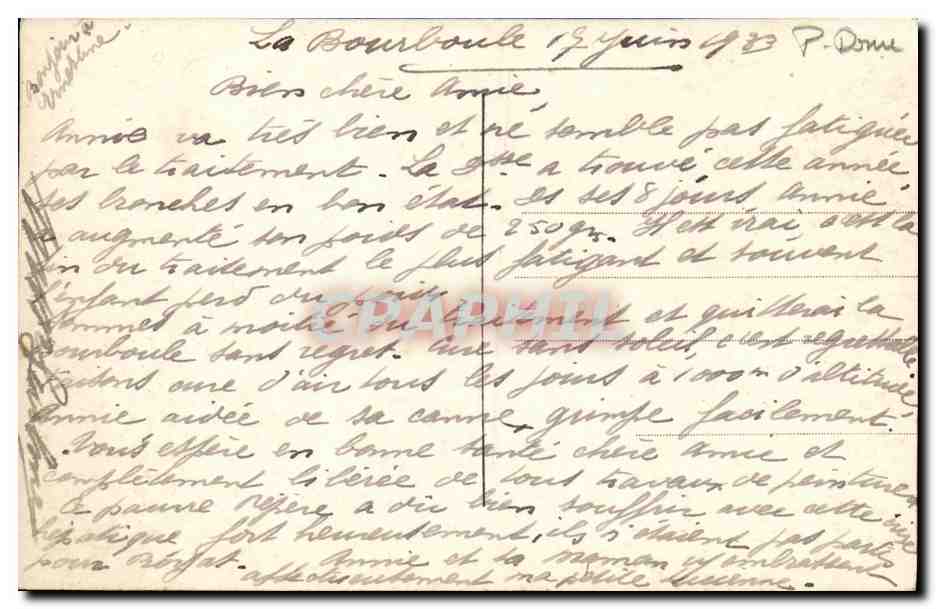 Bonjour à
La Bourboule 19 Juin 1933 P. Dome
Bien chère Amie
Annie va très bien et ne semble pas fatiguée
par le traitement. La a trouvé cette année
ses bronches en bon état. ses 8 jours Annie
a augmenté son poids de 250 gr. Il est vrai c'est la
fin du traitement le plus fatigant et souvent
l'enfant perd du poids.
sommes à moitié du traitement et quitterai la
Bourboule sans regret. sans soleil, c'est regrettable
Faisons cure d'air tous les jours à 1000m d'altitude
Annie aidée de sa canne, grimpe facilement.
Vous espère en bonne santé chère Amie et
complètement libérée de tous travaux de peinture
Ce pauvre a dû bien souffrir avec cette crise
hépatique fort heureusement, ils n'étaient pas partis
pour Royat. Annie et sa maman embrassent
affectueusement ma petite Lucienne.
CPAPHIL